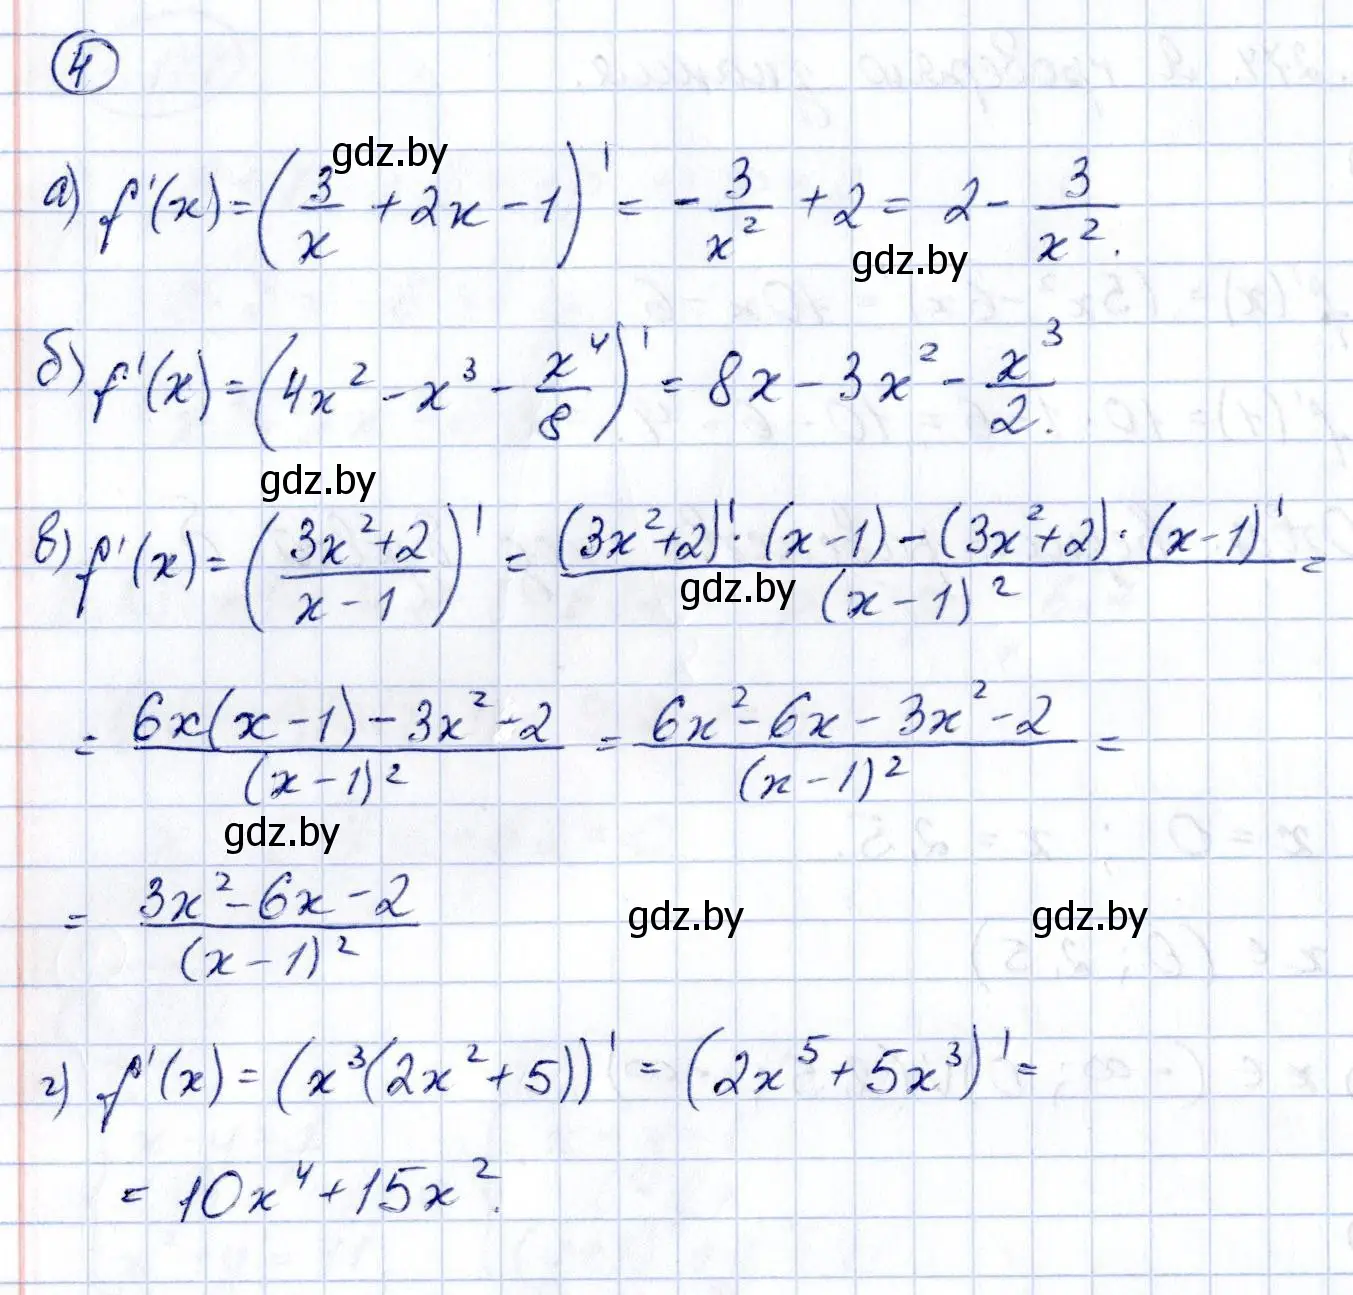 4
gdz.by
а) f'(x) = (3/x + 2x - 1)' = - 3/x² + 2 = 2 - 3/x².
gdz.by
б) f'(x) = (4x² - x³ - x⁴/8)' = 8x - 3x² - x³/2.
gdz.by
в) f'(x) = ((3x²+2)/(x-1))' = ((3x²+2)'·(x-1) - (3x²+2)·(x-1)')/(x-1)² =
gdz.by
= (6x(x-1) - 3x² - 2)/(x-1)² = (6x² - 6x - 3x² - 2)/(x-1)² =
gdz.by
= (3x² - 6x - 2)/(x-1)²
gdz.by gdz.by
г) f'(x) = (x³(2x²+5))' = (2x⁵ + 5x³)' =
= 10x⁴ + 15x².